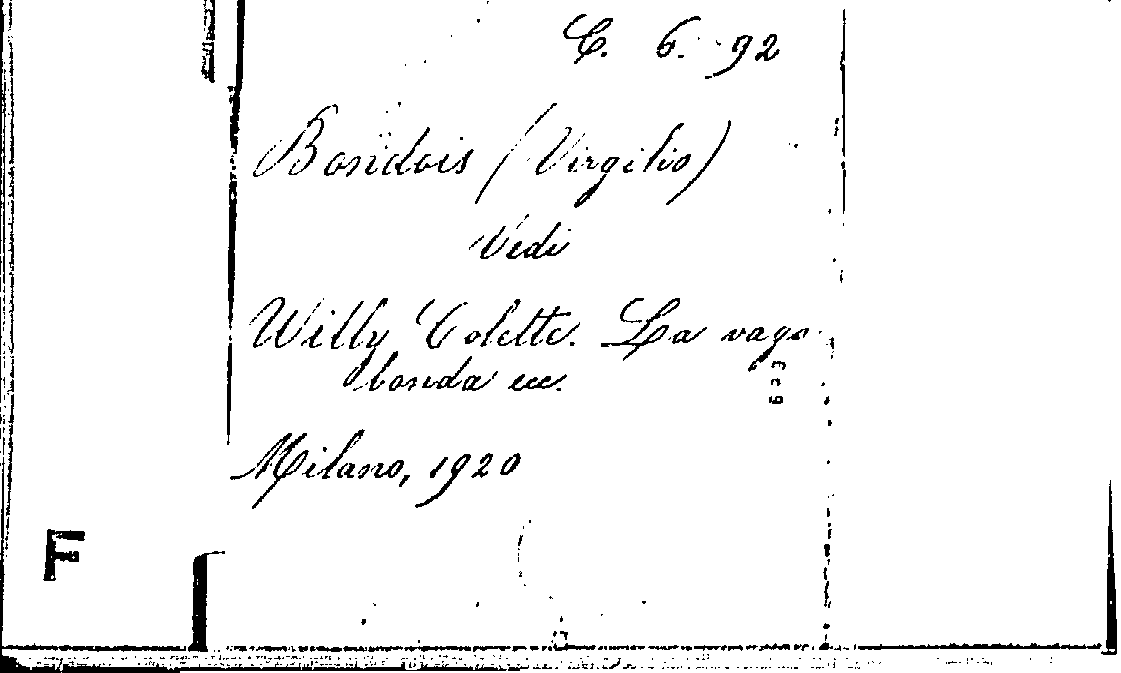 C. 6. 92
Bondois (Virgilio)
Vedi
Willy Colette. La vaga-
bonda ecc.
Milano, 1920
F